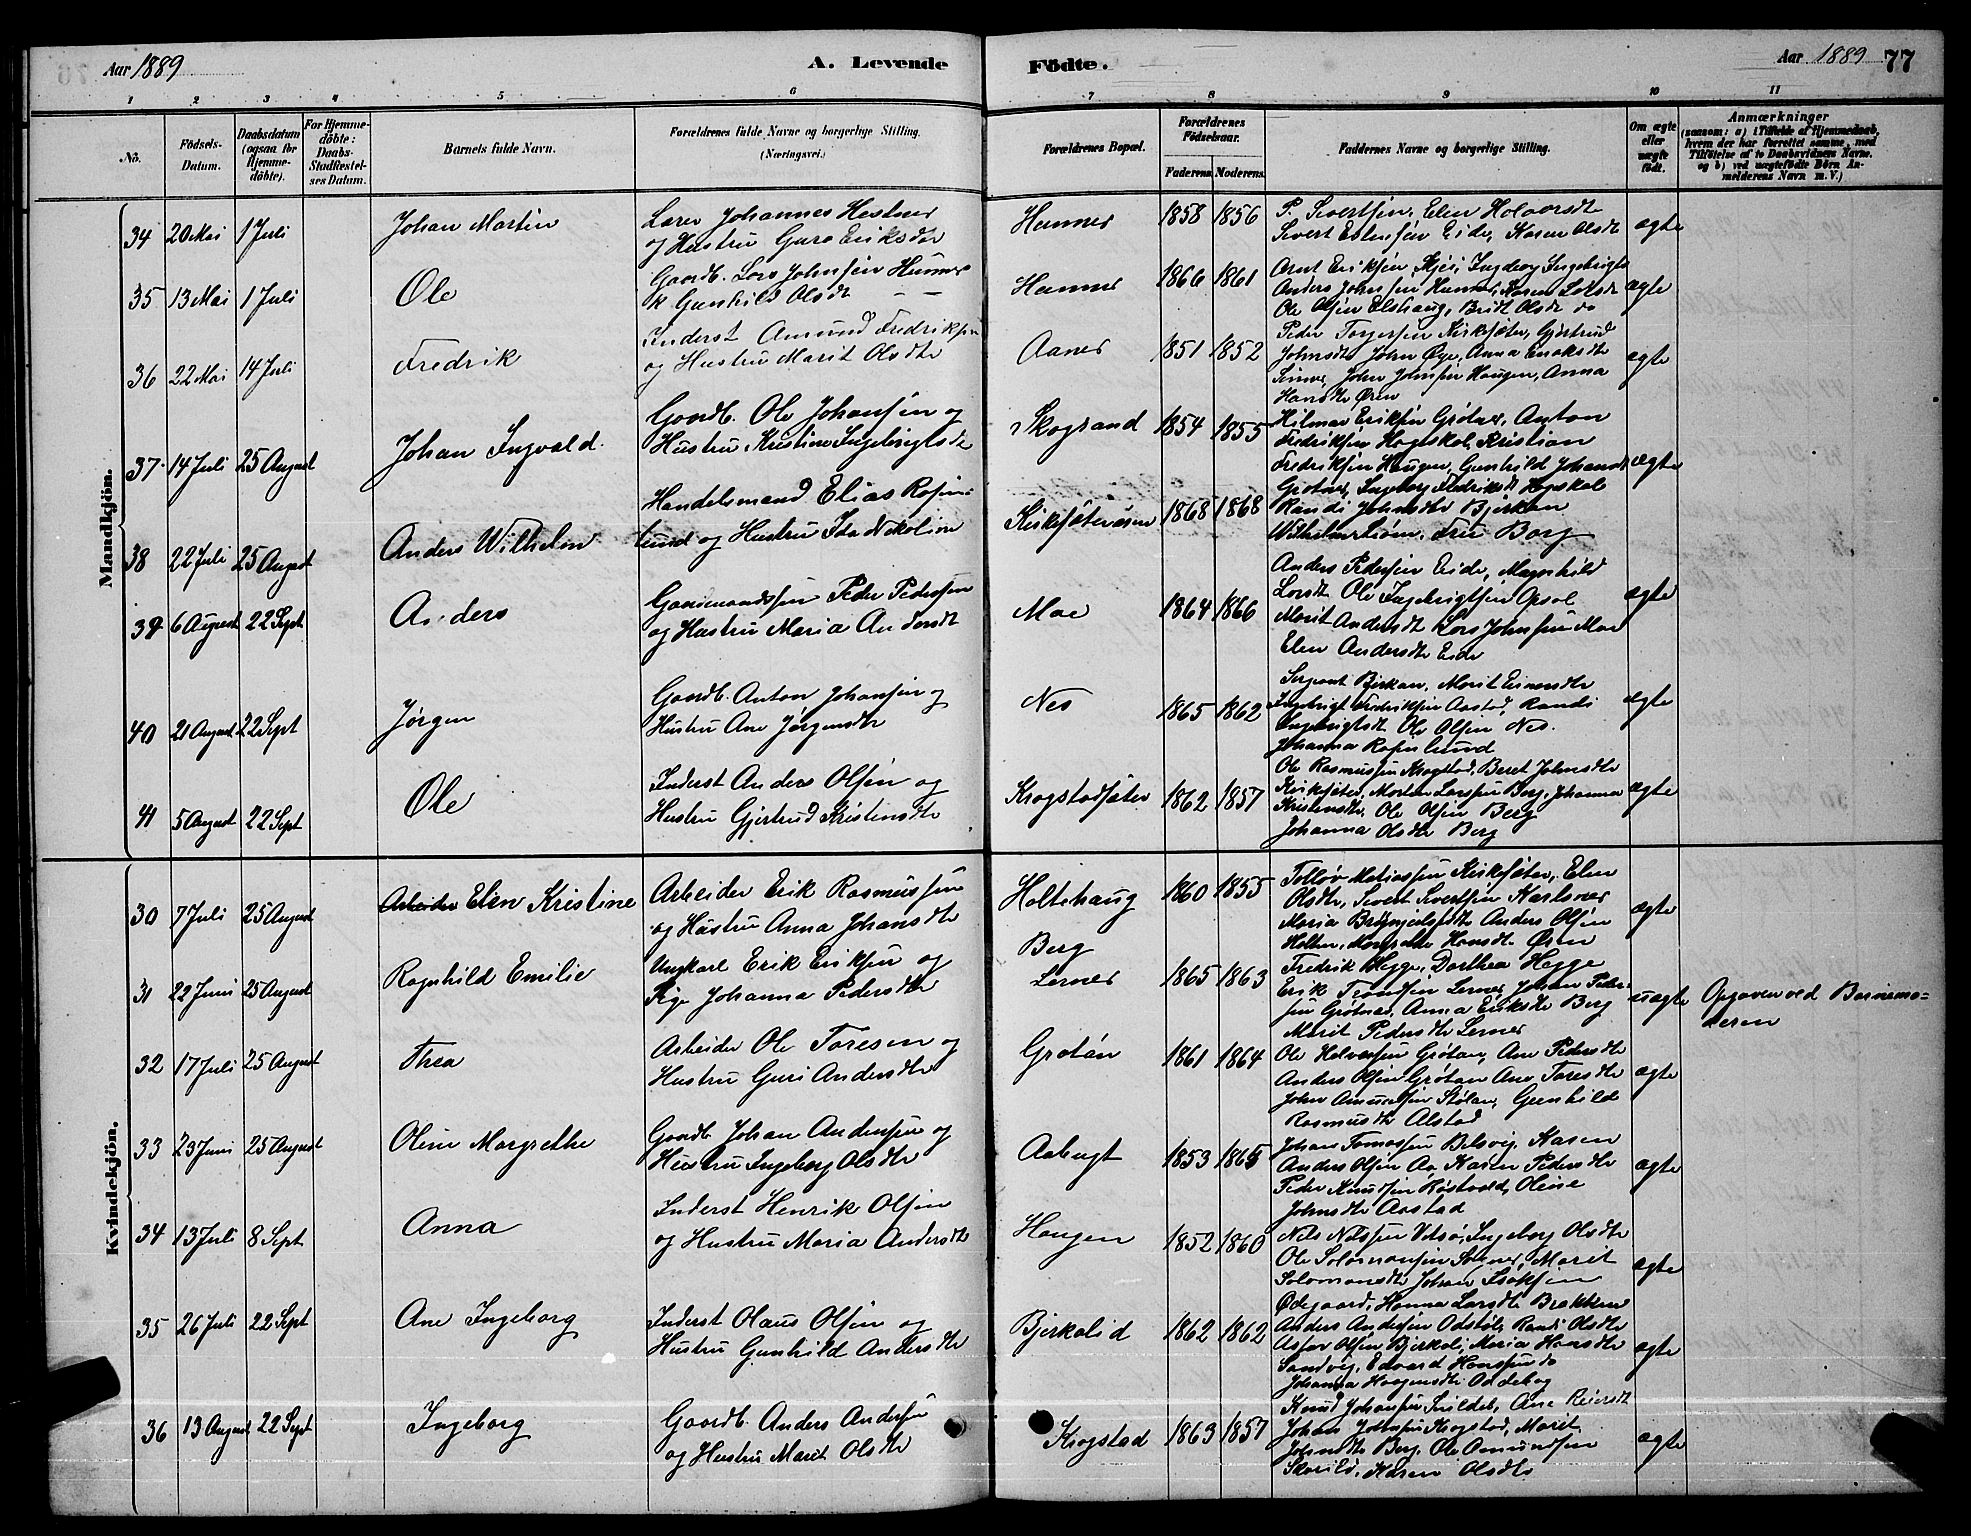 Aar 1889
A. Levende
Födte.
Aar 1889 77
1 2 3 4 5 6 7 8 9 10 11
No.
Födsels-Datum.
Daabsdatum (ogsaa for Hjemme-döbte).
For Hjemme-döbte: Daabs-Stadfæstel-ses Datum.
Barnets fulde Navn.
Forældrenes fulde Navne og borgerlige Stilling.
(Næringsvei.)
Forældrenes Bopæl.
Forældrenes Födselsaar.
Faderens. Moderens.
Faddernes Navne og borgerlige Stilling.
Om ægte eller uægte födt.
Anmærkninger
(saasom: a) i Tilfælde af Hjemmedaab,
hvem der har forrettet samme, med
Tilföielse af to Daabsvidners Navne,
og b) ved uægtefödte Börn An-
melderens Navn m. V.)
Mandkjön.
34 20 Mai 1 Juli Johan Martin
Johannes
og Hustru Guro Eriksdtr
Hunnes 1858 1856
P. Sivertsen, Elen
Sivert Eide, Karen Olsdtr
ægte
35 13 Mai 1 Juli Ole
Gaardb. Lars Johnsen Hunnes
Gunhild Olsdtr
Hunnes 1866 1861
Arnt Eriksen, Ingeborg Ingebrigts
Anders Johnsen Hunnes, Karen Larsdt
Ole Olsen Elshaug, Brit Olsdtr do
ægte
36 22 Mai 14 Juli Fredrik
Inderst Amund Fredriksen
og Hustru Marit Olsdtr
Aanes 1851 1852
Peder Torgersen Kirksæter, Gjertrud
Johnsdtr John Øye, Anna Eriksdtr
John Johnsen Haugen, Anna
Hansdtr Øren
ægte
37 14 Juli 25 August Johan Ingvald
Gaardb. Ole Johansen og
Hustru Kristine Ingebrigtsdtr
Skogrand 1854 1855
Hilmar Eriksen Grötnes, Anton
Fredriksen Kristian
Fredriksen Haugen, Gunhild Johansdt
Grötnes, Ingeborg Fredriksdt
ægte
38 22 Juli 25 August Anders Wilhelm
Handelsmand Elias Rosen-
lund og Hustru Ida Nikoline
Kirksæterøren 1868 1868
Randi Johnsdtr Bjerkan
Wilhelm Strøm, Fru Borg
39 6 August 22 Sept Anders
Gaardmandssøn Peder Pedersen
og Hustru Maria An Larsdt
Moe 1864 1866
Anders Pedersen Eide, Magnhild
Larsdt Ole Ingebrigtsen Opsal
Marit Andersdt Lars Johnsen Moe
Elen Andersdtr Eide
ægte
40 21 August 22 Sept Jørgen
Gaardb. Anton Johansen og
Hustru Ane Jørgensdtr
Nes 1865 1862
Sergeant Bjerkan, Marit
Ingebrigt Fredriksen Aastad, Randi
Ingebrigtsdt Ole Olsen Nes.
Johanna Rosenlund
ægte
41 5 August 22 Sept Ole
Inderst Anders Olsen og
Hustru Gjertrud Kristensdtr
Krogstadsæter 1862 1857
Ole Rasmussen Krogstad, Beret Johnsdtr
Kirksæter, Morten Larssen Berg, Johanna
Kristensdtr Ole Olsen Berg
Johanna Olsdtr Berg
ægte
Kvindekjön.
30 7 Juli 25 August Arbeider Elen Kristine
Arbeider Erik Rasmussen
og Hustru Anna Johansdtr
Holtehaug 1860 1855
Matiassen Kirksæter, Elen
Olsdtr, Sivert Sivertsen Karlsnes
Maria Brynjelfsdtr Anders Olsen
Holten, Margrethe Hansdt Øren
ægte
31 22 Juni 25 August Ragnhild Emilie
Ungkarl Erik Eriksen og
Pige Johanna Pedersdtr
Berg
Lernes 1865 1863
Fredrik Hegge, Dorthea Hegge
Erik Tronsen Lernes Johan Peder-
sen Grötnes, Anna Eriksdtr Berg
Marit Pedersdtr Lernes
uægte Opgaven ved Barnemo-
deren
32 17 Juli 25 August Thea
Arbeider Ole Toresen og
Hustru Guri Andersdtr
Grötan 1861 1864
Ole Halvorsen Grötan, Ane Pedersdtr
Anders Olsen Grötan Ane Toresdtr
John Amundsen Stølan, Gunhild
Rasmusdtr Alstad
ægte
33 23 Juni 25 August Oline Margrethe
Gaardb. Johan Andersen og
Hustru Ingeborg Olsdtr
Aabugt 1853 1865
Johan Tomassen Belsvig, Karen
Anders Olsen Aa, Karen Pedersdtr
Peder Knudsen Röstvold, Oline
Johnsdtr Aastad
ægte
34 13 Juli 8 Sept Anna
Inderst Henrik Olsen
og Hustru Maria Andersdtr
Haugen 1852 1860
Nils Nilssen Vitsö, Ingeborg Olsdtr
Ole Solomonsen Marit
Solomonsdtr Johan Isaksen
Ødegaard, Hanna Larsdtr Brakken
ægte
35 26 Juli 22 Sept Ane Ingeborg
Inderst Olaus Olsen og
Hustru Gunhild Andersdtr
Bjerkelid 1862 1862
Anders Andersen Randi Olsdtr
Olsen Bjerkeli, Maria Hansdtr
Sandvig, Edvard Hanssen do
Johanna
ægte
36 13 August 22 Sept Ingeborg
Gaardb. Anders Andersen
og Hustru Marit Olsdtr
Krogstad 1863 1857
Knud Johansen Snildal, Ane
Johan Johnsen Krogstad, Marit
Johnsdtr Berg, Ole Amundsen
Skarild, Karen Olsdtr
ægte